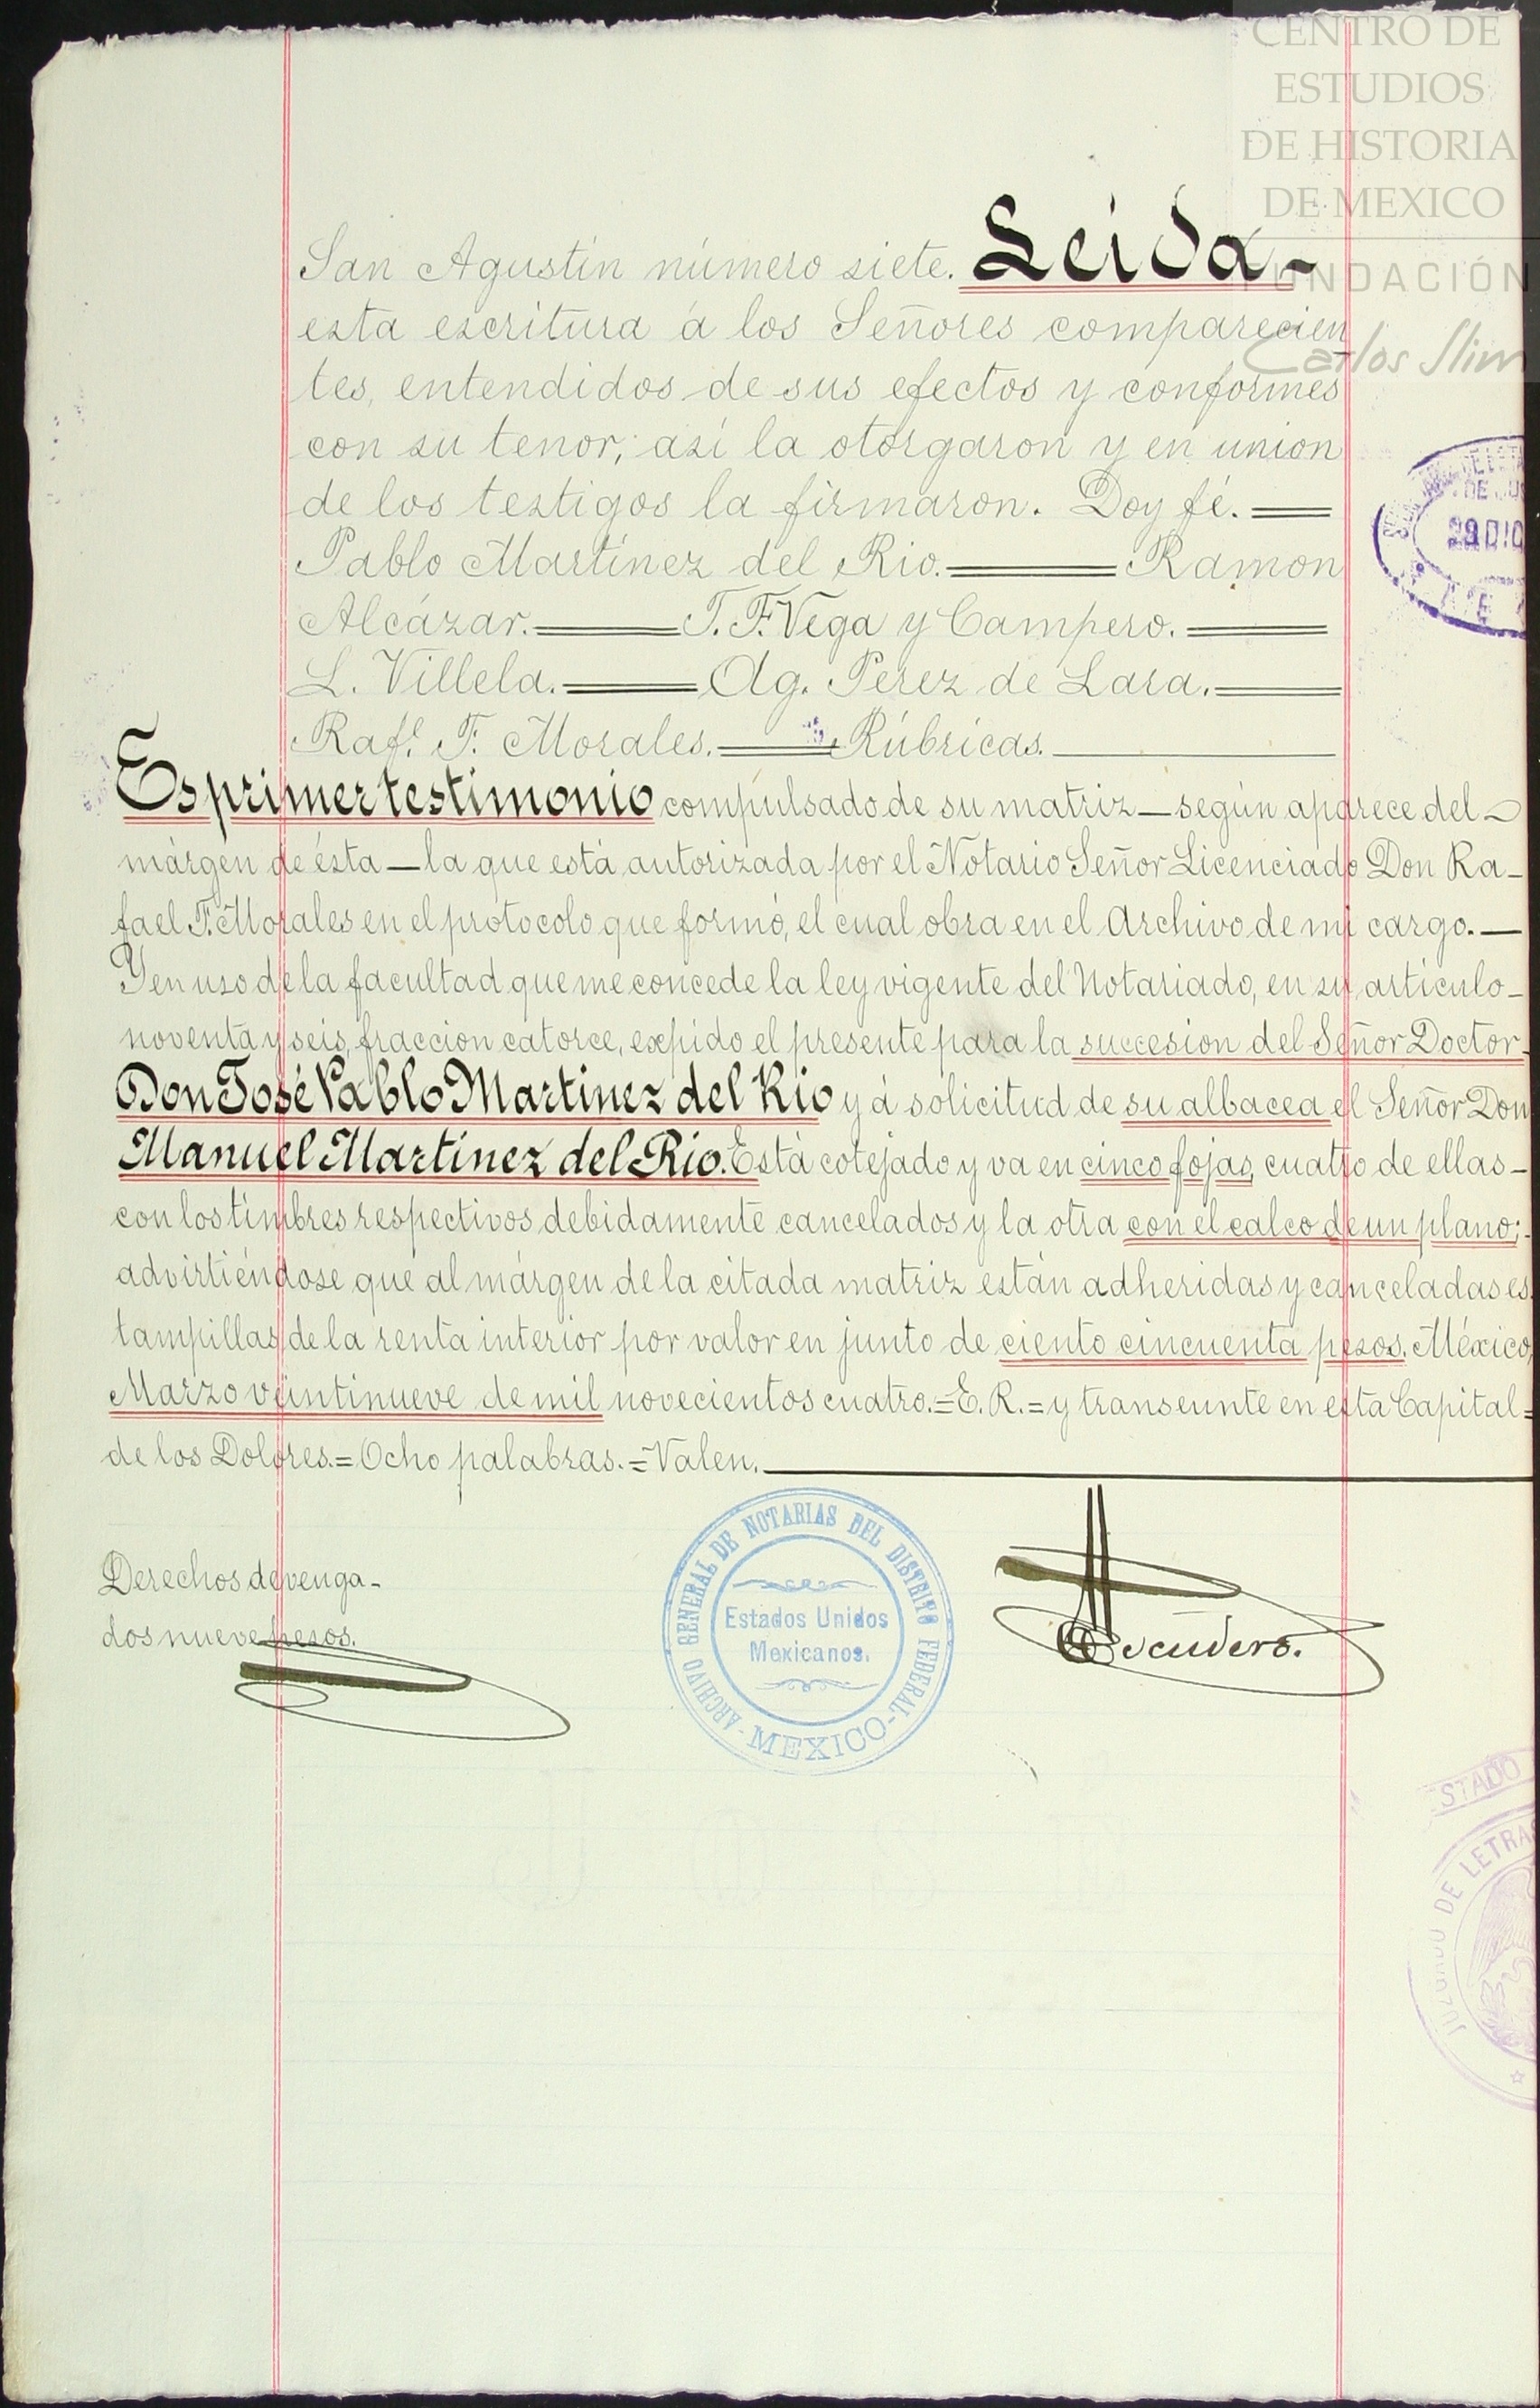 CENTRO DE
ESTUDIOS
DE HISTORIA
DE MEXICO
FUNDACIÓN
Carlos Slim
San Agustín número siete. Leida-
esta escritura á los Señores comparecien
tes, entendidos de sus efectos y conformes
con su tenor; así la otorgaron y en union
de los testigos la firmaron. Doy fé. =
Pablo Martínez del Rio. = Ramon
Alcázar. = T. F. Vega y Campero. =
L. Villela. = Ag. Perez de Lara. =
Raf.l F. Morales. = Rúbricas.
Es primer testimonio compulsado de su matriz—según aparece del-
márgen de ésta—la que está autorizada por el Notario Señor Licenciado Don Ra-
fael F. Morales en el protocolo que formó, el cual obra en el Archivo de mi cargo.—
Y en uso de la facultad que me concede la ley vigente del Notariado, en su artículo-
noventa y seis, fraccion catorce, expido el presente para la succesion del Señor Doctor-
Don José Pablo Martinez del Rio y á solicitud de su albacea el Señor Don
Manuel Martínez del Rio. Está cotejado y va en cinco fojas, cuatro de ellas-
con los timbres respectivos debidamente cancelados y la otra con el calco de un plano;-
advirtiéndose que al márgen de la citada matriz están adheridas y canceladas es
tampillas de la renta interior por valor en junto de ciento cincuenta pesos. México,
Marzo veintinueve de mil novecientos cuatro.=E. R.=y transeunte en esta Capital=
de los Dolores.=Ocho palabras.=Valen.
Derechos devenga-
dos nueve pesos.
ARCHIVO GENERAL DE NOTARIAS DEL DISTRITO FEDERAL
-MEXICO-
Estados Unidos
Mexicanos.
Escudero.
29 DIC
STADO
JUZGADO DE LETRAS